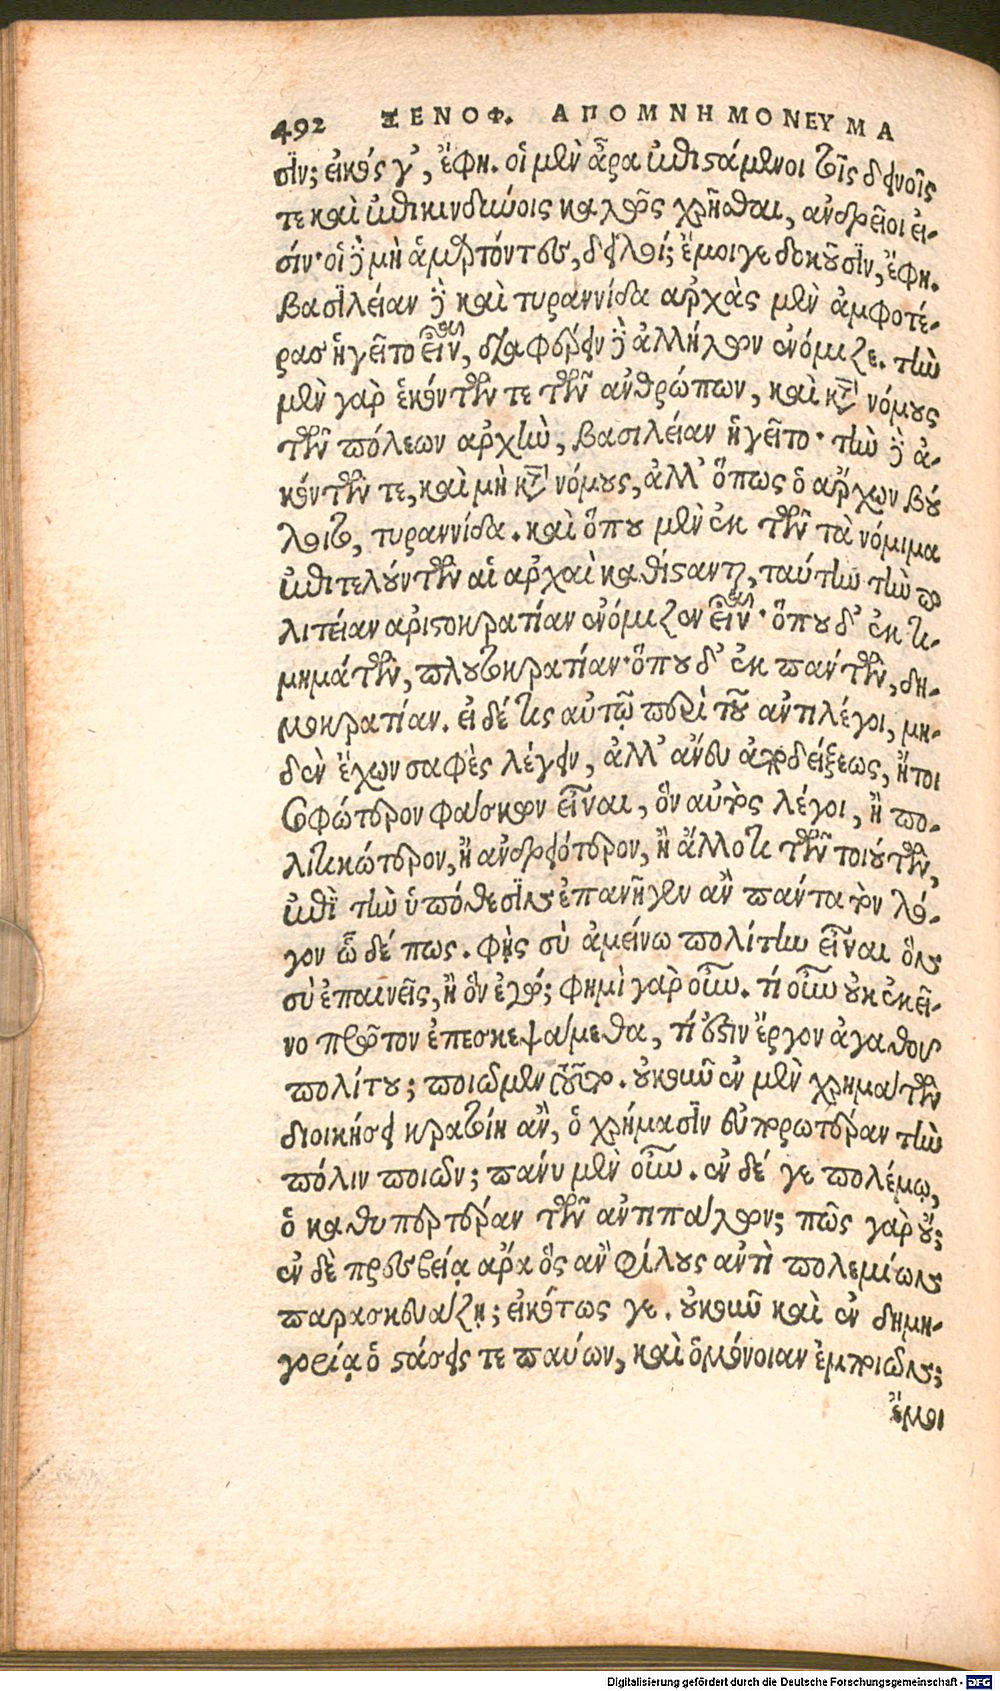 492 ΞΕΝΟΦ. ΑΠΟΜΝΗΜΟΝΕΥΜΑ
σϊν; εἰκός γ', ἔφη. οἱ μὲν ἄρα ἐπιστάμενοι τοῖς δεινοῖς
τε καὶ ἐπικινδύνοις καλῶς χρῆσθαι, ἀνδρεῖοι εἰ-
σίν· οἱ δὲ μὴ ἁμαρτόντες, δειλοί; ἔμοιγε δοκοῦσϊν, ἔφη.
βασϊλείαν δὲ καὶ τυραννίδα ἀρχὰς μὲν ἀμφοτέ-
ρας ἡγεῖτο εἶναι, διαφέρειν δὲ ἀλλήλων ἐνόμιζε. τὴν
μὲν γὰρ ἑκόντων τε τῶν ἀνθρώπων, καὶ κατὰ νόμους
τῶν πόλεων ἀρχὴν, βασιλείαν ἡγεῖτο· τὴν δὲ ἀ-
κόντων τε, καὶ μὴ κατὰ νόμους, ἀλλ' ὅπως ὁ ἄρχων βού
λοιτο, τυραννίδα. καὶ ὅπου μὲν ἐκ τῶν τὰ νόμιμα
ἐπιτελούντων αἱ ἀρχαὶ καθίσανται, ταύτην τὴν πο
λιτείαν ἀριστοκρατίαν ἐνόμιζον εἶναι· ὅπου δ' ἐκ τι-
μημάτων, πλουτοκρατίαν· ὅπου δ' ἐκ πάντων, δη-
μοκρατίαν. εἰ δέ τις αὐτῷ περὶ τοῦ ἀντιλέγοι, μη-
δὲν ἔχων σαφὲς λέγειν, ἀλλ' ἄνευ ἀποδείξεως, ἤτοι
σοφώτερον φάσκων εἶναι, ὃν αὐτὸς λέγοι, ἢ πο-
λιτικώτερον, ἢ ἀνδρειότερον, ἢ ἄλλο τι τῶν τοιούτων,
ἐπὶ τὴν ὑπόθεσϊν ἐπανῆγεν ἂν πάντα τὸν λό-
γον ὧ δέ πως. φῂς σὺ ἀμείνω πολίτην εἶναι ὃν
σὺ ἐπαινεῖς, ἢ ὃν ἐγώ; φημὶ γὰρ οὖν. τί οὖν οὐκ ἐκεῖ-
νο πρῶτον ἐπεσκεψάμεθα, τί ἐστιν ἔργον ἀγαθοῦ
πολίτου; ποιῶμεν τοῦτο. οὐκοῦν ἐν μὲν χρημάτων
διοικήσει κρατοίη ἂν, ὁ χρήμασϊν εὐπορωτέραν τὴν
πόλιν ποιῶν; πάνυ μὲν οὖν. ἐν δέ γε πολέμῳ,
ὁ καθυπερτέραν τῶν ἀντιπάλων; πῶς γὰρ οὔ;
ἐν δὲ πρεσβείᾳ ἆρα ὃς ἂν φίλους ἀντὶ πολεμίων
παρασκευάζῃ; εἰκότως γε. οὐκοῦν καὶ ἐν δημη-
γορίᾳ ὁ στάσεις τε παύων, καὶ ὁμόνοιαν ἐμποιῶν;
ἔμοι